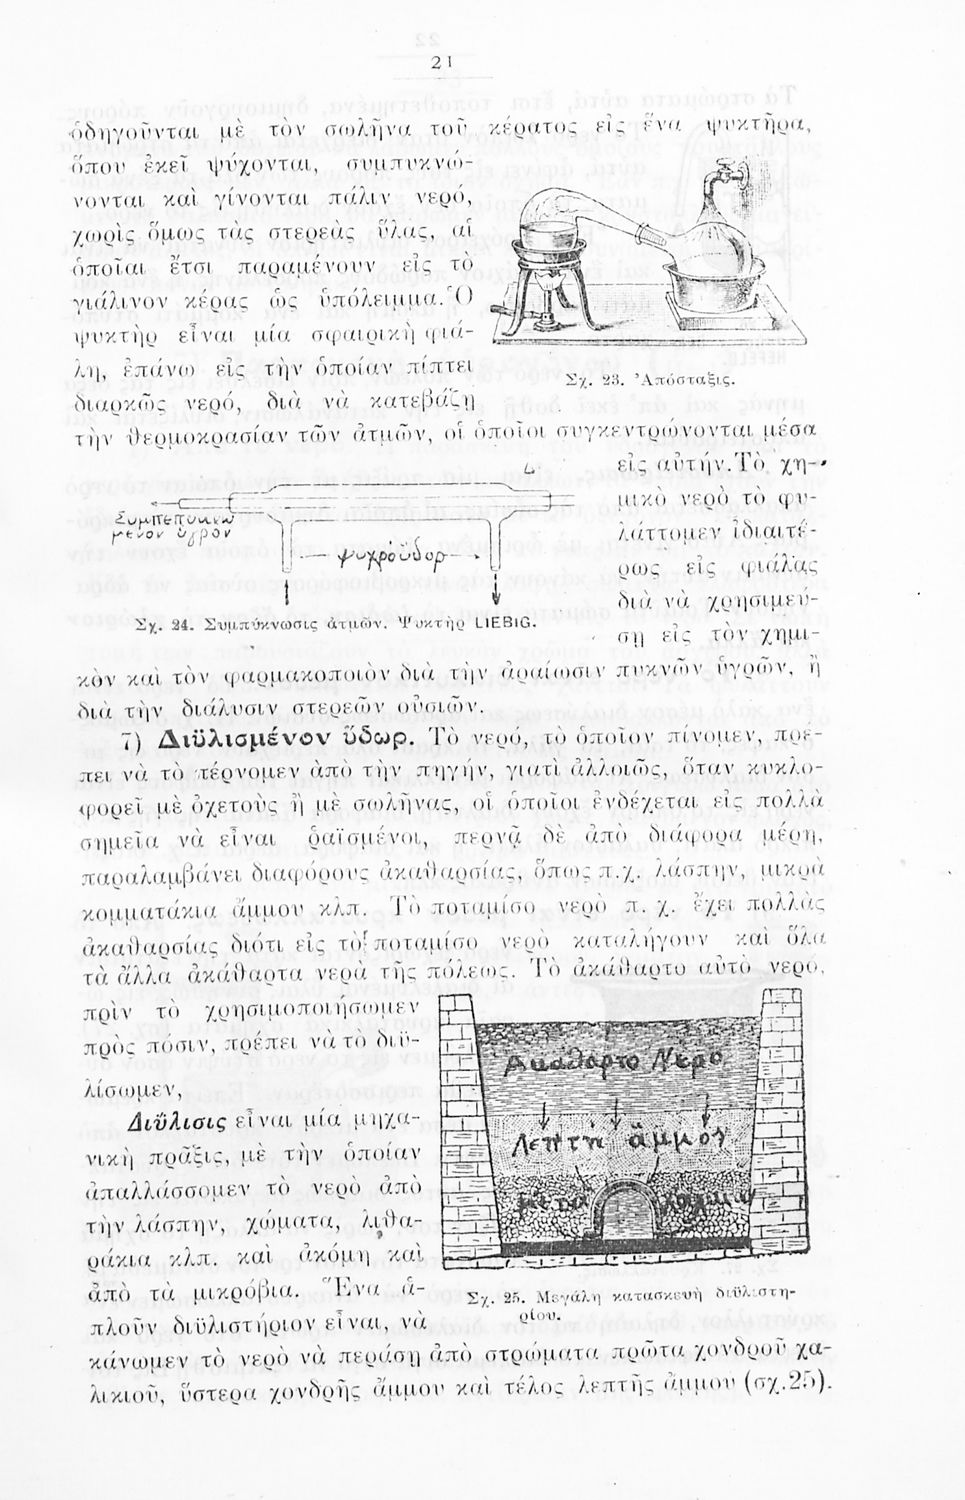 21
ὁδηγοῦνται μὲ τὸν σωλῆνα τοῦ κέρατος εἰς ἕνα ψυκτῆρα,
ὅπου ἐκεῖ ψύχονται, συμπυκνώ-
νονται καὶ γίνονται πάλιν νερό,
χωρὶς ὅμως τὰς στερεὰς ὕλας, αἱ
ὁποῖαι ἔτσι παραμένουν εἰς τὸ
γιάλινον κέρας ὡς ὑπόλειμμα. Ὁ
ψυκτὴρ εἶναι μία σφαιρικὴ φιά-
λη, ἐπάνω εἰς τὴν ὁποίαν πίπτει
διαρκῶς νερό, διὰ νὰ κατεβάζῃ
Σχ. 23. Ἀπόσταξις.
τὴν θερμοκρασίαν τῶν ἀτμῶν, οἱ ὁποῖοι συγκεντρώνονται μέσα
εἰς αὐτήν. Τὸ χη-
μικὸ νερὸ τὸ φυ-
λάττομεν ἰδιαιτέ-
ρως εἰς φιάλας
διὰ νὰ χρησιμεύ-
σῃ εἰς τὸν χημι-
Συμπεπυκνω
μένον ὑγρὸν
ψυχρὸ ὕδορ
Σχ. 24. Συμπύκνωσις ἀτμῶν. Ψυκτὴρ LIEBIG.
κὸν καὶ τὸν φαρμακοποιὸν διὰ τὴν ἀραίωσιν πυκνῶν ὑγρῶν, ἢ
διὰ τὴν διάλυσιν στερεῶν οὐσιῶν.
7) Διϋλισμένον ὕδωρ. Τὸ νερό, τὸ ὁποῖον πίνομεν, πρέ-
πει νὰ τὸ πέρνομεν ἀπὸ τὴν πηγήν, γιατὶ ἀλλοιῶς, ὅταν κυκλο-
φορεῖ μὲ ὀχετοὺς ἢ μὲ σωλῆνας, οἱ ὁποῖοι ἐνδέχεται εἰς πολλὰ
σημεῖα νὰ εἶναι ῥαϊσμένοι, περνᾷ δὲ ἀπὸ διάφορα μέρη,
παραλαμβάνει διαφόρους ἀκαθαρσίας, ὅπως π.χ. λάσπην, μικρὰ
κομματάκια ἄμμου κλπ. Τὸ ποταμίσο νερὸ π. χ. ἔχει πολλὰς
ἀκαθαρσίας διότι εἰς τὸ ποταμίσο νερὸ καταλήγουν καὶ ὅλα
τὰ ἄλλα ἀκάθαρτα νερὰ τῆς πόλεως. Τὸ ἀκάθαρτο αὐτὸ νερό,
πρὶν τὸ χρησιμοποιήσωμεν
πρὸς πόσιν, πρέπει νὰ τὸ διϋ-
λίσωμεν,
Διΰλισις εἶναι μία μηχα-
νικὴ πρᾶξις, μὲ τὴν ὁποίαν
ἀπαλλάσσομεν τὸ νερὸ ἀπὸ
τὴν λάσπην, χώματα, λιθα-
ράκια κλπ. καὶ ἀκόμη καὶ
ἀπὸ τὰ μικρόβια. Ἕνα ἁ-
πλοῦν διϋλιστήριον εἶναι, νὰ
Ἀκάθαρτο Νερο
Λεπτὴ ἄμμον
Σχ. 25. Μεγάλη κατασκευὴ διϋλιστη-
ρίου.
κάνωμεν τὸ νερὸ νὰ περάσῃ ἀπὸ στρώματα πρῶτα χονδροῦ χα-
λικιοῦ, ὕστερα χονδρῆς ἄμμου καὶ τέλος λεπτῆς ἄμμου (σχ.25).